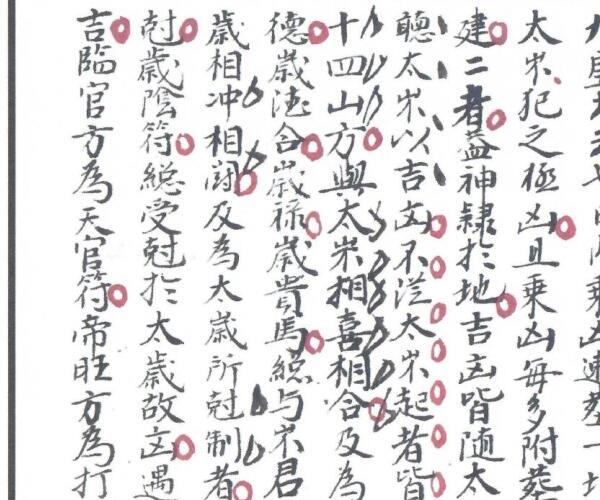 太岁犯之極凶且乘凶每多附葬
建二者益神隸於地吉凶皆随太
聽太岁以吉凶不從太岁起者皆
十四山方與太岁相喜相合及為
德歲德合歲禄歲貴馬總与岁君
歲相冲相鬪及為太歲所尅制者
尅歲陰符總受尅於太歲故凶遇
吉臨官方為天官符帝旺方為打